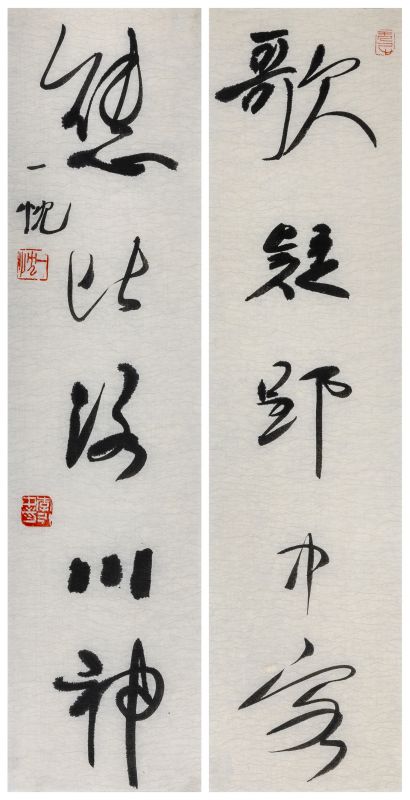 歌疑郢中客
態比洛川神
一忱